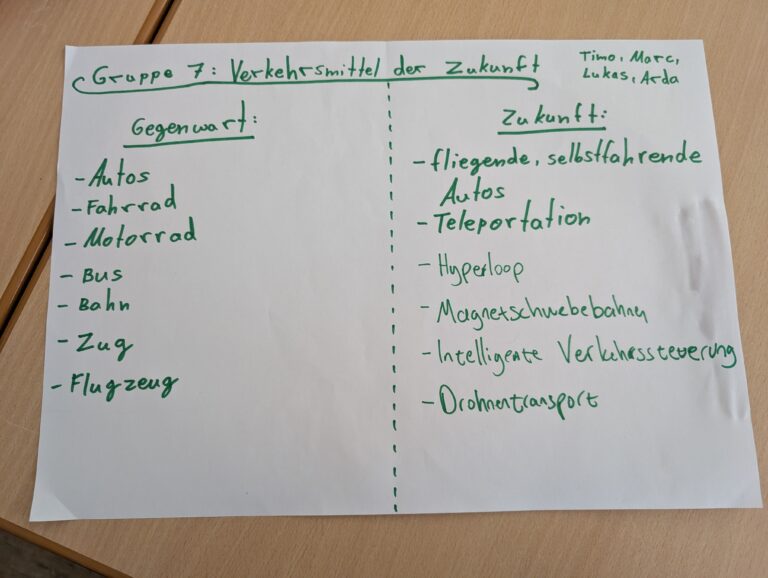 Gruppe 7: Verkehrsmittel der Zukunft
Timo, Marc,
Lukas, Arda
Gegenwart:
- Autos
- Fahrrad
- Motorrad
- Bus
- Bahn
- Zug
- Flugzeug
Zukunft:
- fliegende, selbstfahrende
Autos
- Teleportation
- Hyperloop
- Magnetschwebebahn
- Intelligente Verkehrssteuerung
- Drohnentransport